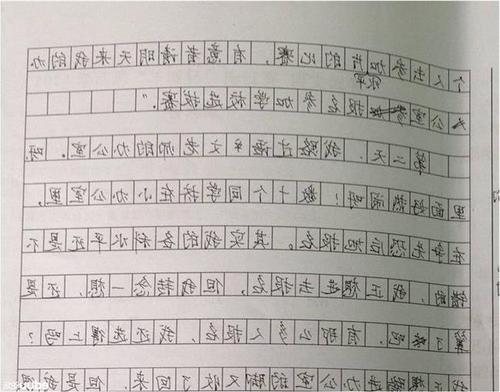 个人去参加书的比赛，有意者请明天来我的办
公室报名参加学校选拔赛。”
第二天，我路过语文老师的办公室。呀，
里面好热闹呀！数十个同学挤在小办公室里，
在争先恐后地报名。其实我的各科水平还是不
错的，我正想进去报名，但我转念一想，还是
算了吧。有那么多人报名，我还选得上吗？
办公室的脚又收了回来。但是